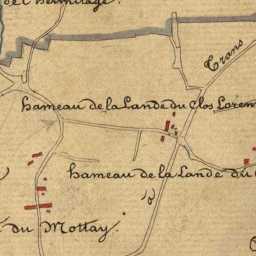 de l'hermitage.
Trans
hameau de la Lande du Clos Loren
hameau de la Lande du
du Mottay